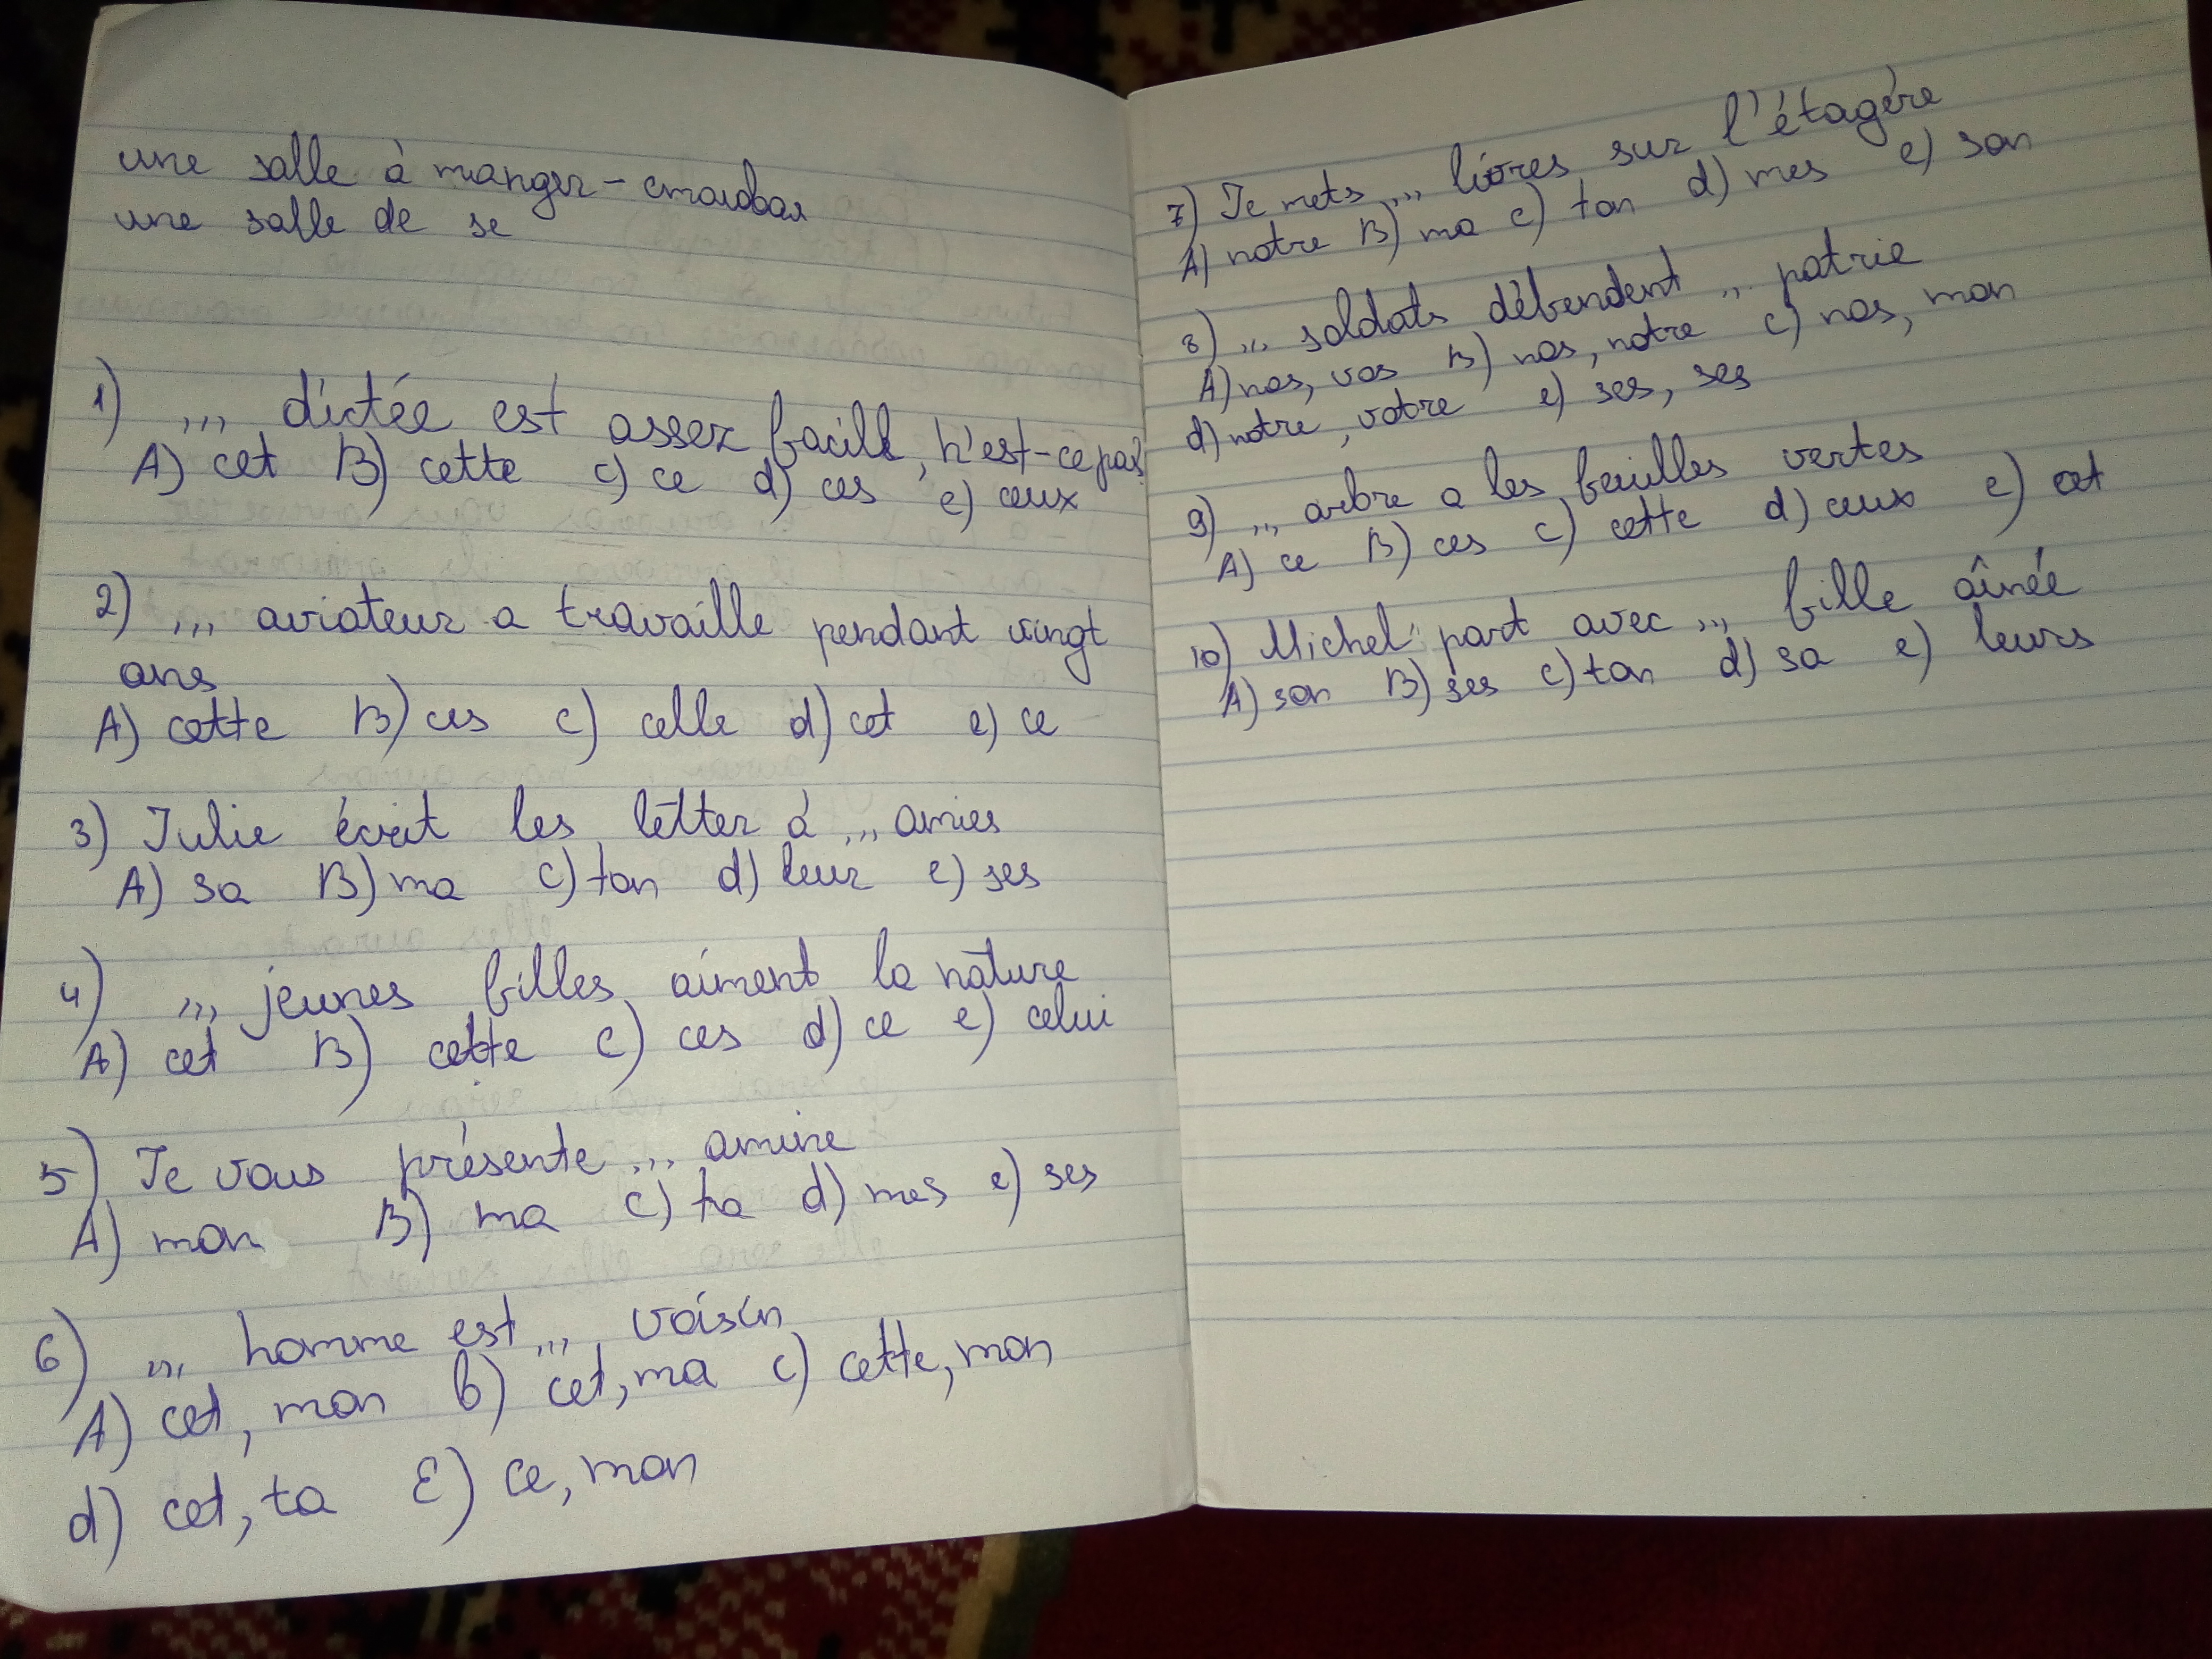 une salle à manger - столовая
une salle de se
1) ... dictée est assez facile, n'est-ce pas?
A) cet B) cette c) ce d) ces e) ceux
2) ... aviateur a travaille pendant vingt
ans
A) cette B) ces c) celle d) cet e) ce
3) Julie écrit les letter à ... amies
A) sa B) ma c) ton d) leur e) ses
4) ... jeunes filles aiment la nature
A) cet B) cette c) ces d) ce e) celui
5) Je vous présente ... amine
A) mon B) ma c) ta d) mes e) ses
6) ... homme est ... voisin
A) cet, mon B) cet, ma c) cette, mon
d) cet, ta E) ce, mon
7) Je mets ... livres sur l'étagére
A) notre B) ma c) ton d) mes e) son
8) ... soldats défendent ... patrie
A) nos, vos B) nos, notre c) nos, mon
d) notre, votre e) ses, ses
9) ... arbre a les feuilles vertes
A) ce B) ces c) cette d) ceux e) cet
10) Michel part avec ... fille aînée
A) son B) ses c) ton d) sa e) leurs